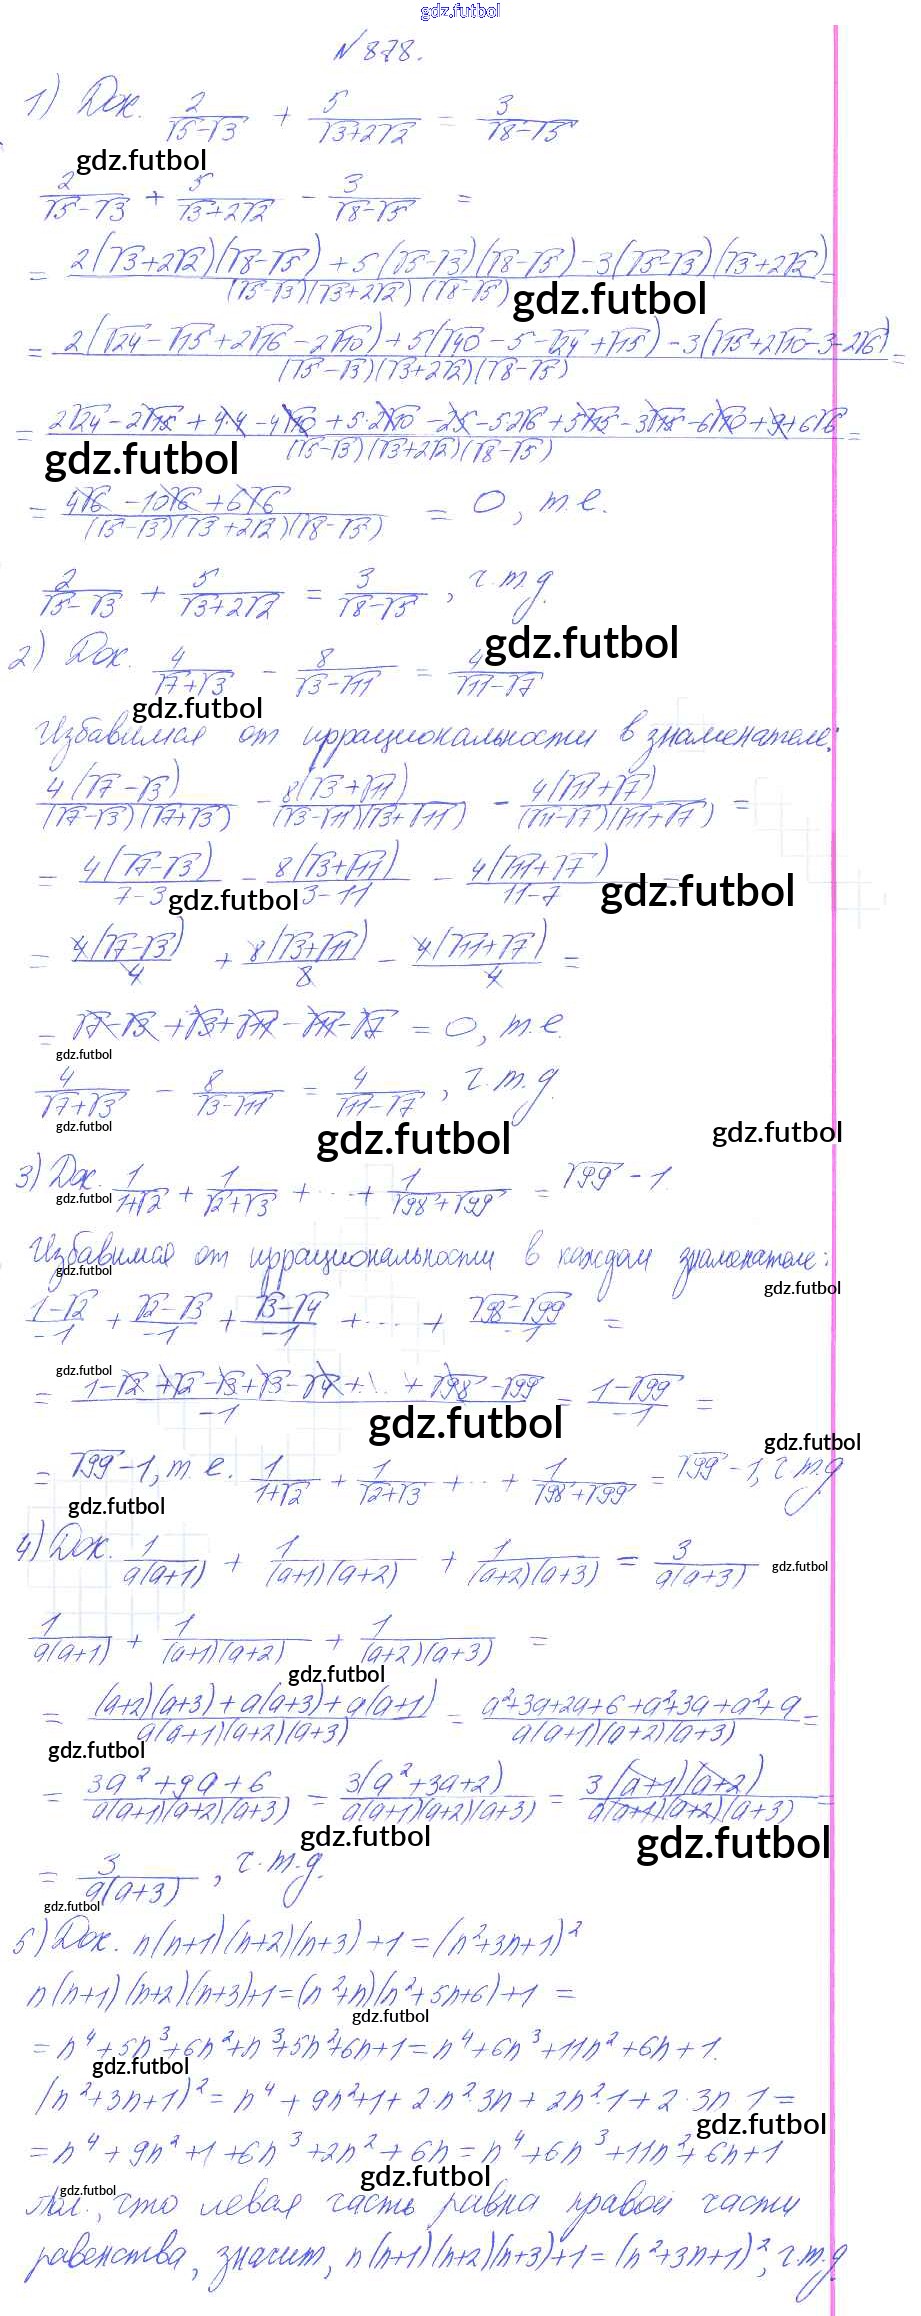 gdz.futbol
№ 878.
1) Док. 2/(√5-√3) + 5/(√3+2√2) = 3/(√8-√5)
gdz.futbol
2/(√5-√3) + 5/(√3+2√2) - 3/(√8-√5) =
= (2(√3+2√2)(√8-√5) + 5(√5-√3)(√8-√5) - 3(√5-√3)(√3+2√2))/((√5-√3)(√3+2√2)(√8-√5)) =
gdz.futbol
= (2(√24-√15+2√16-2√10) + 5(√40-5-√24+√15) - 3(√15+2√10-3-2√6))/((√5-√3)(√3+2√2)(√8-√5)) =
= (2√24-2√15+4·4-4√10+5·2√10-25-5·2√6+5√15-3√15-6√10+9+6√6)/((√5-√3)(√3+2√2)(√8-√5)) =
gdz.futbol
= (4√6-10√6+6√6)/((√5-√3)(√3+2√2)(√8-√5)) = 0, т.е.
2/(√5-√3) + 5/(√3+2√2) = 3/(√8-√5), ч.т.д.
gdz.futbol
2) Док. 4/(√7+√3) - 8/(√3-√11) = 4/(√11-√7)
gdz.futbol
Избавимся от иррациональности в знаменателе:
4(√7-√3)/((√7-√3)(√7+√3)) - 8(√3+√11)/((√3-√11)(√3+√11)) - 4(√11+√7)/((√11-√7)(√11+√7)) =
= 4(√7-√3)/(7-3) - 8(√3+√11)/(3-11) - 4(√11+√7)/(11-7) =
gdz.futbol gdz.futbol
= 4(√7-√3)/4 + 8(√3+√11)/8 - 4(√11+√7)/4 =
= √7-√3+√3+√11-√11-√7 = 0, т.е.
gdz.futbol
4/(√7+√3) - 8/(√3-√11) = 4/(√11-√7), ч.т.д.
gdz.futbol gdz.futbol gdz.futbol
3) Док. 1/(1+√2) + 1/(√2+√3) + ... + 1/(√98+√99) = √99 - 1
gdz.futbol
Избавимся от иррациональности в каждом знаменателе:
gdz.futbol gdz.futbol
(1-√2)/-1 + (√2-√3)/-1 + (√3-√4)/-1 + ... + (√98-√99)/-1 =
gdz.futbol
= (1-√2+√2-√3+√3-√4+...+√98-√99)/-1 = (1-√99)/-1 =
gdz.futbol gdz.futbol
= √99-1, т.е. 1/(1+√2) + 1/(√2+√3) + ... + 1/(√98+√99) = √99-1, ч.т.д
gdz.futbol
4) Док. 1/(a(a+1)) + 1/((a+1)(a+2)) + 1/((a+2)(a+3)) = 3/(a(a+3))
gdz.futbol
1/(a(a+1)) + 1/((a+1)(a+2)) + 1/((a+2)(a+3)) =
gdz.futbol
= ((a+2)(a+3)+a(a+3)+a(a+1))/(a(a+1)(a+2)(a+3)) = (a²+3a+2a+6+a²+3a+a²+a)/(a(a+1)(a+2)(a+3)) =
gdz.futbol
= (3a²+9a+6)/(a(a+1)(a+2)(a+3)) = 3(a²+3a+2)/(a(a+1)(a+2)(a+3)) = 3(a+1)(a+2)/(a(a+1)(a+2)(a+3)) =
gdz.futbol gdz.futbol
= 3/(a(a+3)), ч.т.д.
gdz.futbol
5) Док. n(n+1)(n+2)(n+3)+1=(n²+3n+1)²
n(n+1)(n+2)(n+3)+1=(n²+n)(n²+5n+6)+1 =
gdz.futbol
= n⁴+5n³+6n²+n³+5n²+6n+1 = n⁴+6n³+11n²+6n+1.
gdz.futbol
(n²+3n+1)² = n⁴+9n²+1+2·n²·3n+2n²·1+2·3n·1 =
gdz.futbol
= n⁴+9n²+1+6n³+2n²+6n = n⁴+6n³+11n²+6n+1
gdz.futbol gdz.futbol
что левая часть равна правой части
равенства, значит, n(n+1)(n+2)(n+3)+1=(n²+3n+1)², ч.т.д